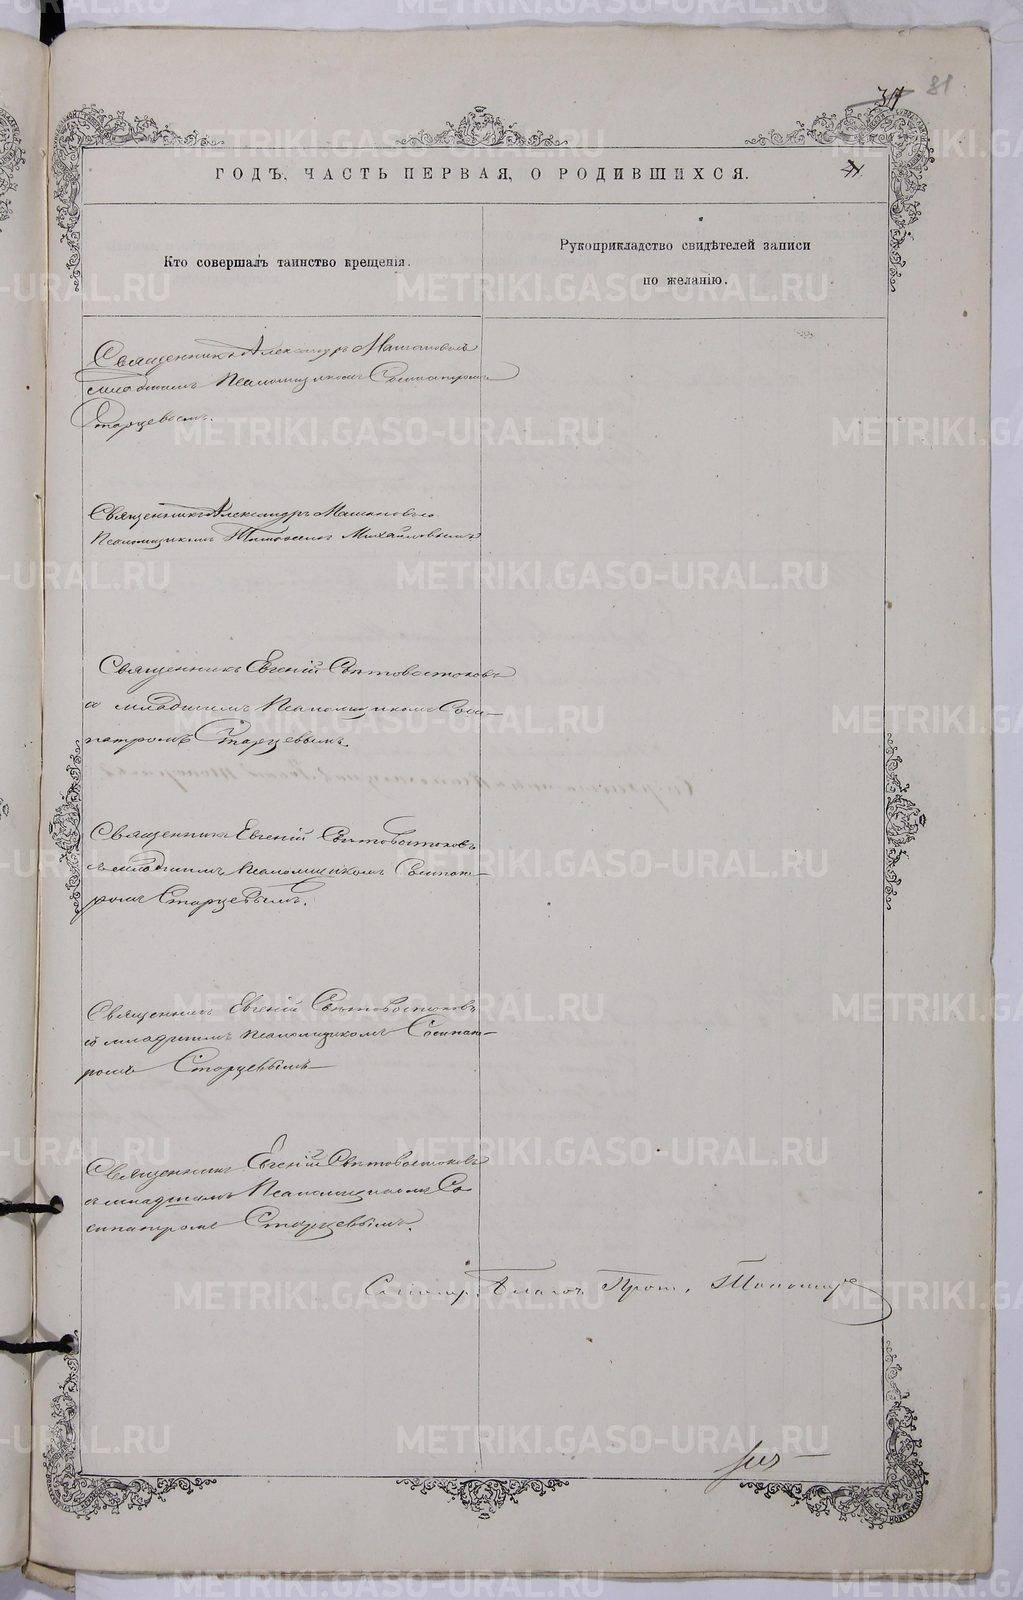 37 81
ГОДЪ, ЧАСТЬ ПЕРВАЯ, О РОДИВШИХСЯ.
Кто совершалъ таинство крещенія.
Рукоприкладство свидѣтелей записи
по желанію.
Священникъ Александръ
младшимъ Псаломщикомъ Сосипатромъ
Старцевымъ.
Священникъ Александръ
Псаломщикомъ Михайловымъ
Священникъ Евгеній Свѣтовостоковъ
съ младшимъ Псаломщикомъ Соси-
патромъ Старцевымъ.
Священникъ Евгеній Свѣтовостоковъ
съ младшимъ Псаломщикомъ Сосипат-
ромъ Старцевымъ.
Священникъ Евгеній Свѣтовостоковъ
съ младшимъ псаломщикомъ Сосипат-
ромъ Старцевымъ
Священникъ Евгеній Свѣтовостоковъ
съ младшимъ Псаломщикомъ Со-
сипатромъ Старцевымъ.
Благоч. Прот.
METRIKI.GASO-URAL.RU